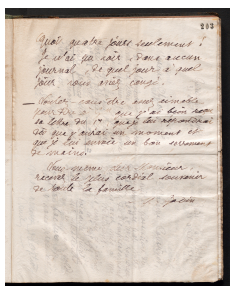 203
Quoi quatre jours seulement !
Je n'ai pu voir, dans aucun
journal, de quel jour à quel
jour vous avez congé.
— Voulez-vous être assez aimable
pour dire à que j'ai bien reçu
sa lettre du que je lui répondrai
dès que j'aurai un moment et
que je lui envoie un bon serrement
de mains.
Monsieur
recevez le plus cordial souvenir
de toute la famille